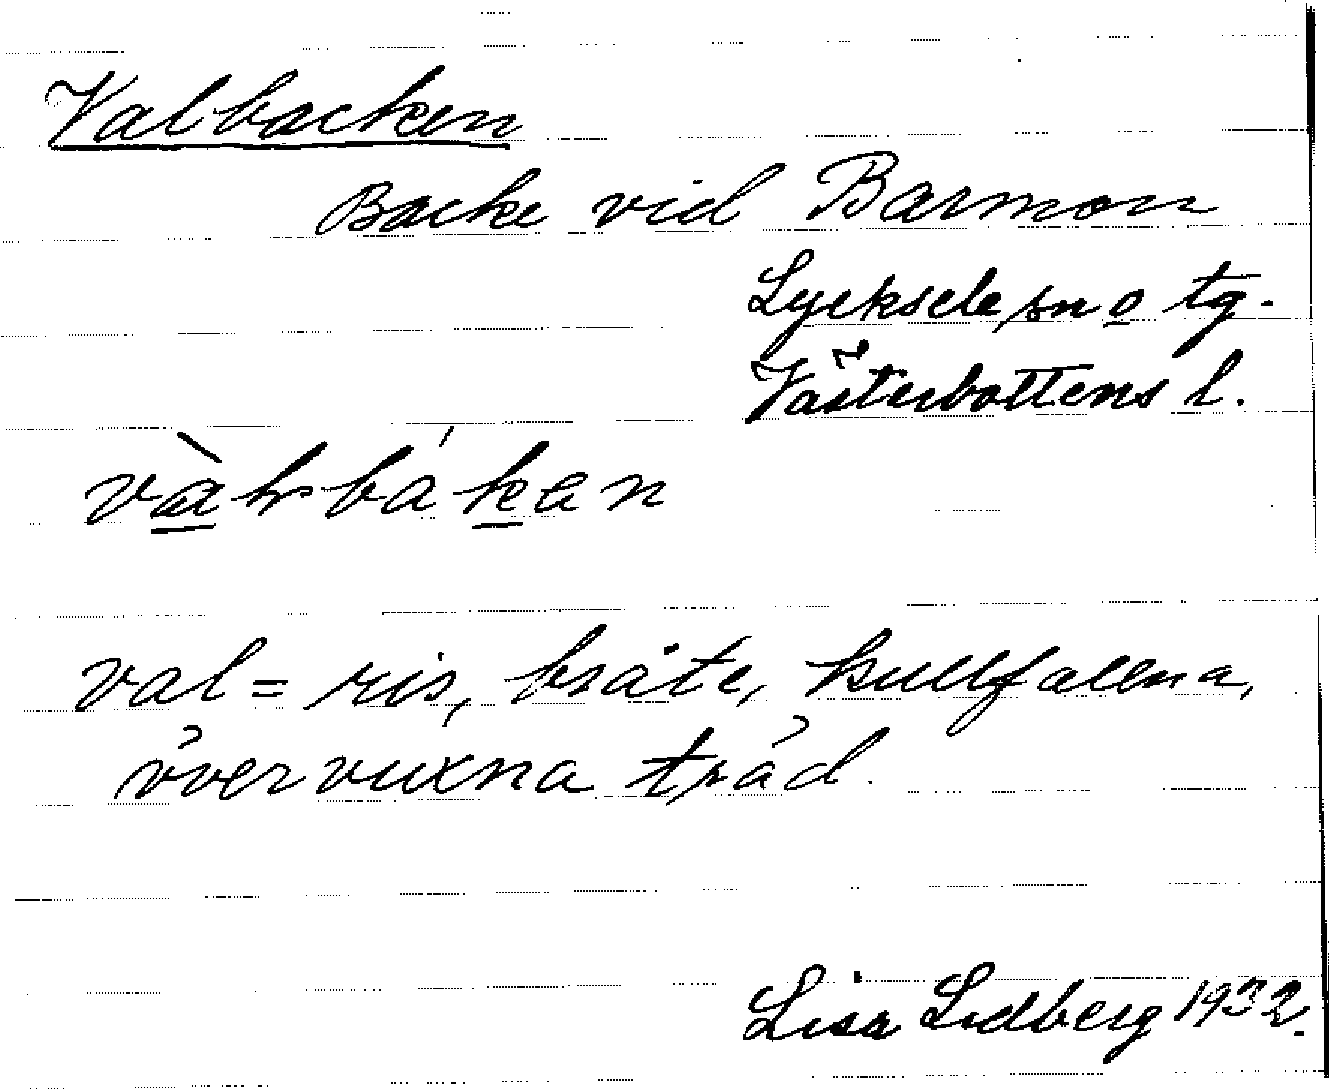 Valbacken
Backe vid Barmon
Lycksele sn o tg.
Västerbottens l.
val = ris, bråte, kullfallena,
övervuxna träd.
Lisa Lidberg 1932.